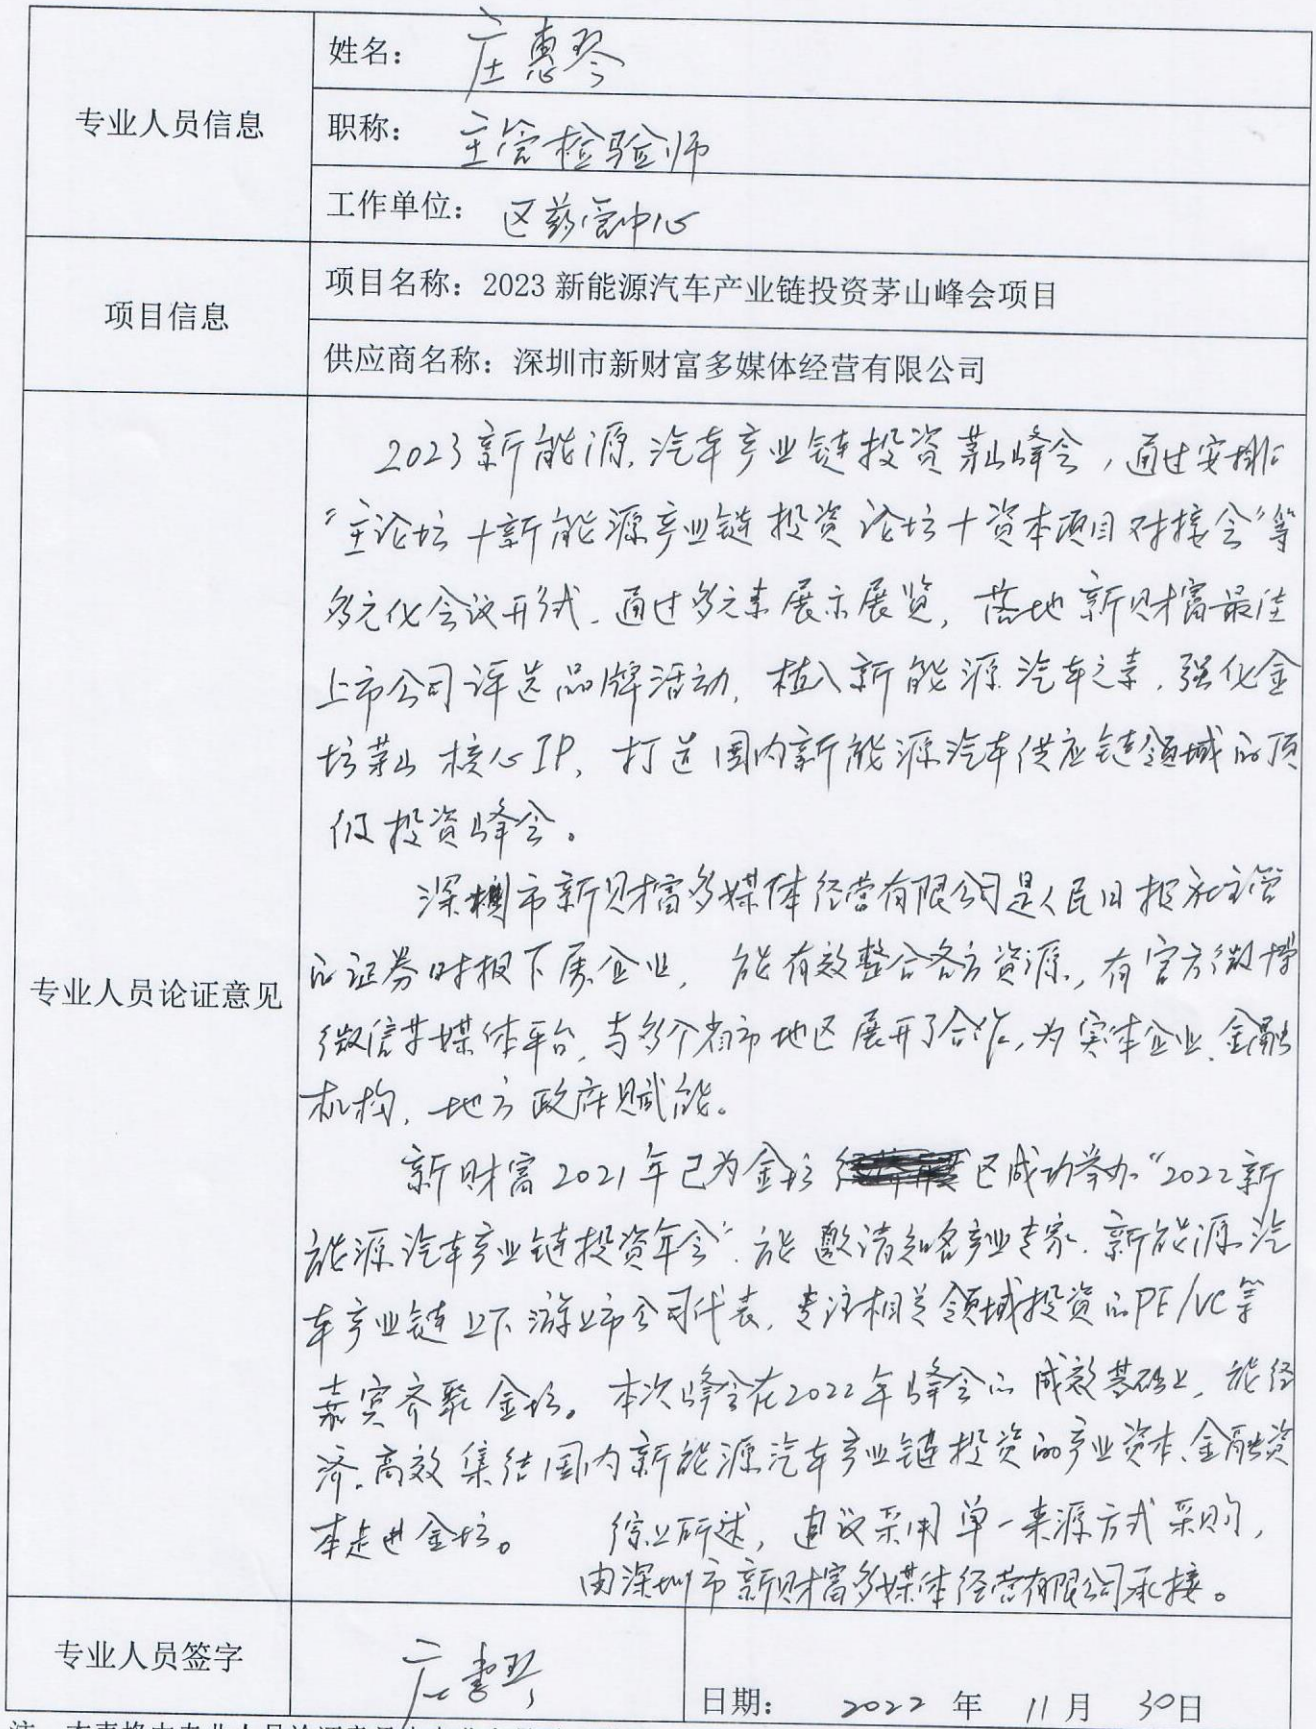 专业人员信息
姓名： 庄惠琴
职称： 主管检验师
工作单位： 区药管中心
项目信息
项目名称：2023 新能源汽车产业链投资茅山峰会项目
供应商名称：深圳市新财富多媒体经营有限公司
专业人员论证意见
2023新能源汽车产业链投资茅山峰会，通过安排
“主论坛＋新能源产业链投资论坛＋资本项目对接会”等
多元化会议形式，通过多元素展示展览，落地新财富最佳
上市公司评选品牌活动，植入新能源汽车元素，强化金
坛茅山核心IP，打造国内新能源汽车供应链领域的顶
级投资峰会。
深圳市新财富多媒体经营有限公司是人民日报社主管
的证券时报下属企业，能有效整合各方资源，有官方微博
微信等媒体平台，与多个省市地区展开了合作，为实体企业、金融
机构，地方政府赋能。
新财富2021年已为金坛区成功举办“2022新
能源汽车产业链投资年会”，能邀请知名产业专家、新能源汽
车产业链上下游上市公司代表，专注相关领域投资的PE/VC等
嘉宾齐聚金坛。本次峰会在2022年峰会的成效基础上，能经
济、高效集结国内新能源汽车产业链投资的产业资本、金融资
本走进金坛。 综上所述，建议采用单一来源方式采购，
由深圳市新财富多媒体经营有限公司承接。
专业人员签字
庄惠琴
日期： 2022 年 11月 30日